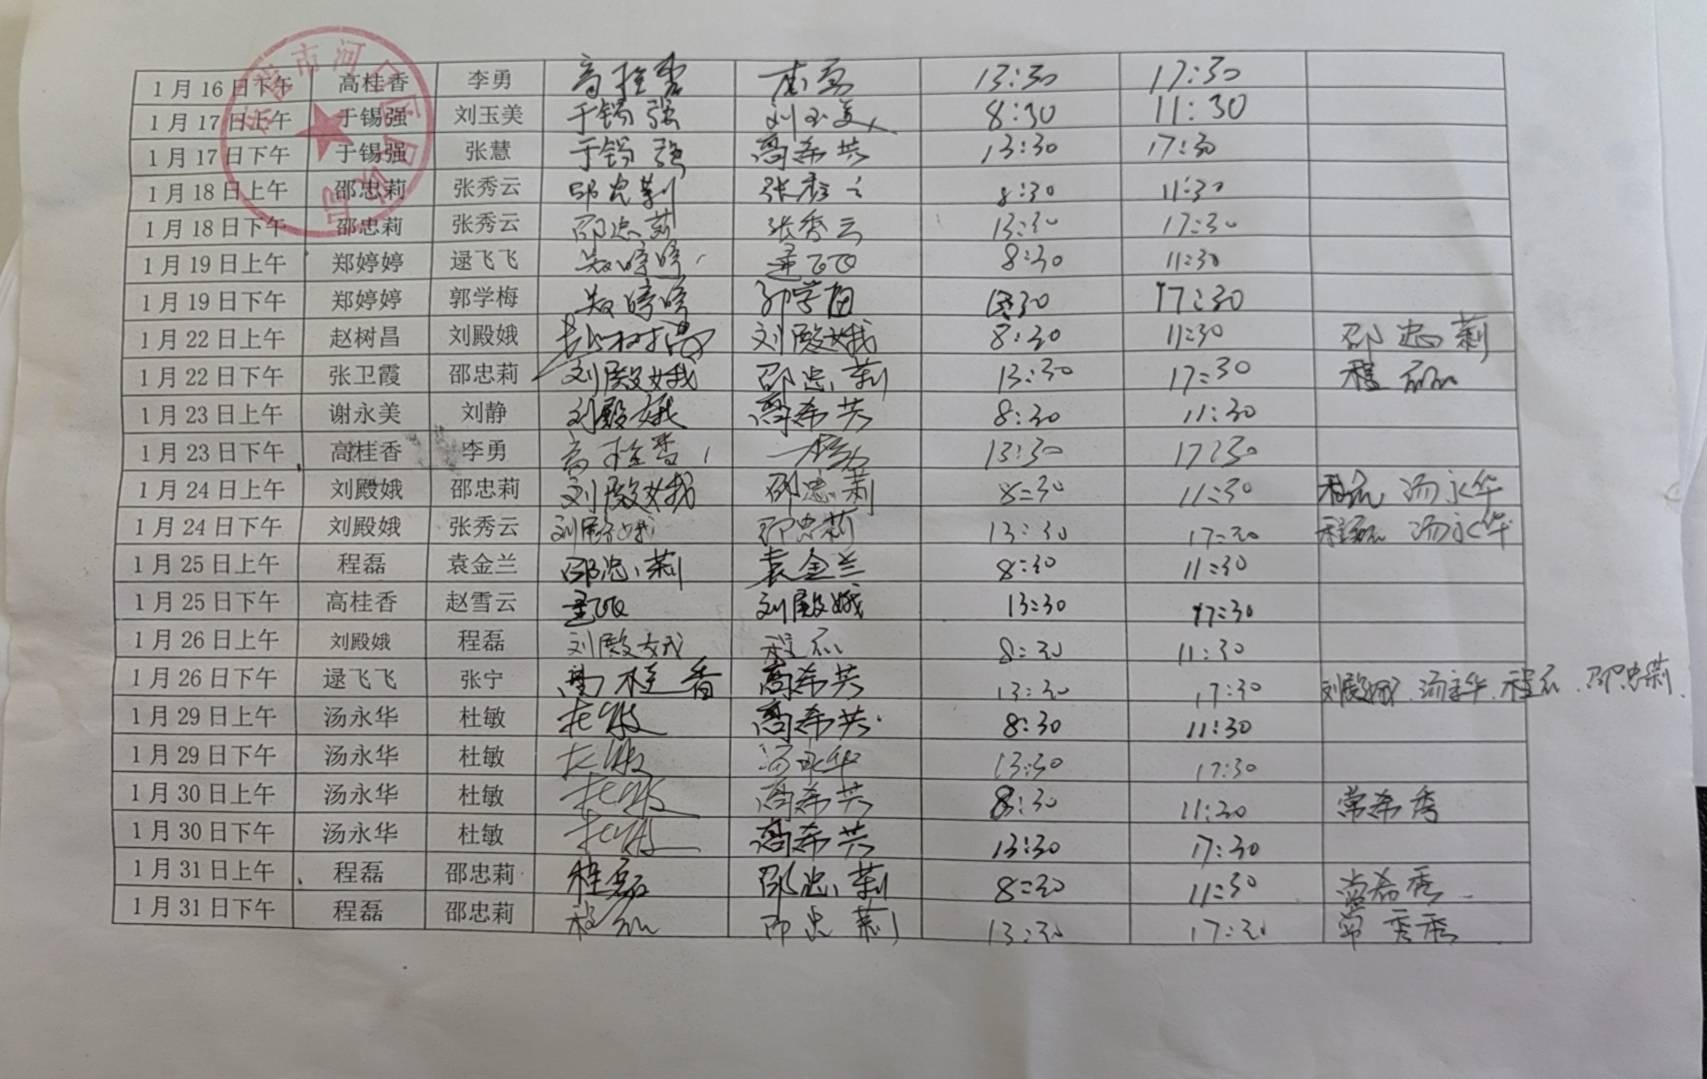 1月16日下午 高桂香 李勇 高桂香 李勇 13:30 17:30
1月17日上午 于锡强 刘玉美 于锡强 刘玉美 8:30 11:30
1月17日下午 于锡强 张慧 于锡强 高希芸 13:30 17:30
1月18日上午 邵忠莉 张秀云 邵忠莉 张秀云 8:30 11:30
1月18日下午 邵忠莉 张秀云 邵忠莉 张秀云 13:30 17:30
1月19日上午 郑婷婷 逯飞飞 郑婷婷 逯飞飞 8:30 11:30
1月19日下午 郑婷婷 郭学梅 郑婷婷 郭学梅 13:30 17:30
1月22日上午 赵树昌 刘殿娥 赵树昌 刘殿娥 8:30 11:30 邵忠莉
1月22日下午 张卫霞 邵忠莉 刘殿娥 邵忠莉 13:30 17:30 程磊
1月23日上午 谢永美 刘静 刘殿娥 高希芸 8:30 11:30
1月23日下午 高桂香 李勇 高桂香 13:30 17:30
1月24日上午 刘殿娥 邵忠莉 刘殿娥 邵忠莉 8:30 11:30 程磊 汤永华
1月24日下午 刘殿娥 张秀云 刘殿娥 邵忠莉 13:30 17:30 程磊 汤永华
1月25日上午 程磊 袁金兰 邵忠莉 袁金兰 8:30 11:30
1月25日下午 高桂香 赵雪云 逯飞飞 刘殿娥 13:30 17:30
1月26日上午 刘殿娥 程磊 刘殿娥 程磊 8:30 11:30
1月26日下午 逯飞飞 张宁 高桂香 高希芸 13:30 17:30 刘殿娥、汤永华、程磊、邵忠莉
1月29日上午 汤永华 杜敏 杜敏 高希芸 8:30 11:30
1月29日下午 汤永华 杜敏 杜敏 汤永华 13:30 17:30
1月30日上午 汤永华 杜敏 杜敏 高希芸 8:30 11:30 常希秀
1月30日下午 汤永华 杜敏 杜敏 高希芸 13:30 17:30
1月31日上午 程磊 邵忠莉 程磊 邵忠莉 8:30 11:30 常希秀
1月31日下午 程磊 邵忠莉 程磊 邵忠莉 13:30 17:30 常秀秀